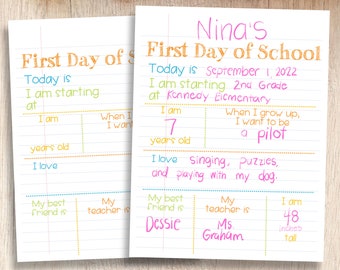 First Day of S
Today is
I am starting
at
I am
When I
I want
years old
I love
My best
friend is
My
teacher is
Nina's
First Day of School
Today is September 1, 2022
I am starting 2nd Grade
at Kennedy Elementary
I am
7
years old
When I grow up,
I want to be
a pilot
I love singing, puzzles,
and playing with my dog.
My best
friend is
Dessie
My
teacher is
Ms.
Graham
I am
48
inches
tall